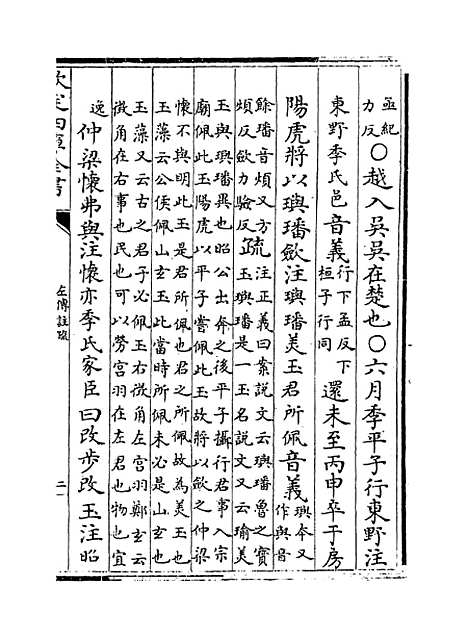 孟紀
力反○越入吳吳在楚也○六月季平子行東野注
東野季氏邑音義行下孟反下
桓子行同還未至丙申卒于房
陽虎將以璵璠斂注璵璠美玉君所佩音義璵本又
作與音
餘璠音煩又方
煩反斂力驗反疏注正義曰案說文云璵璠魯之寶
玉璵璠是一玉名說文又云瑜美
玉與璵璠異也昭公出奔之後平子攝行君事入宗
廟佩此玉陽虎以平子嘗佩此玉故將以斂之仲梁
懷不與明此玉是君所佩也君之所佩故為美玉也
玉藻云公侯佩山玄玉此當時所佩未必是山玄也
玉藻又云古之君子必佩玉右徵角左宮羽鄭玄云
徵角在右事也民也可以勞宮羽在左君也物也宜
逸仲梁懷弗與注懷亦季氏家臣曰改步改玉注昭
欽定四庫全書
左傳註疏